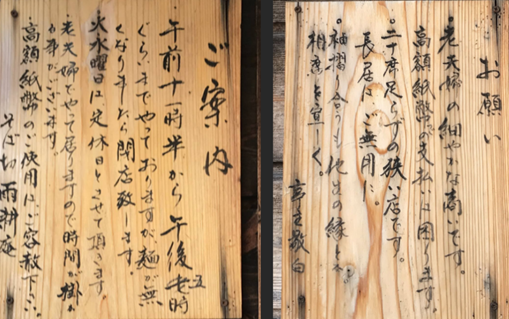 お願い
。老夫婦の細やかな商いです。
高額紙幣の支払いは困ります。
。二十席足らずの狭い店です。
長居はご無用に。
。袖摺り合うも他生の縁とか
相席も宜しく。
亭主敬白
ご案内
午前十一時半から午後五時
ぐらいまでやっておりますが麺が無
くなりましたら閉店致します
火水曜日は定休日とさせて頂きます
老夫婦でやって居りますので時間が掛か
る事がございます。
高額紙幣のご使用はご容赦下さい。
そば切 雨耕庵